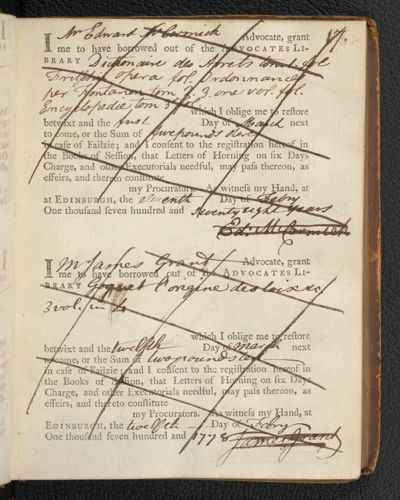 17.
I Mr Edward McCormick Advocate, grant
me to have borrowed out of the ADVOCATES LI-
BRARY Dictionaire des Arrets tom fol
opera fol. Ordonnances
per Fontanon tom 2. 3. one vol. fol.
Encyclopedie tom 3 fol. which I oblige me to restore
betwixt and the first Day of March next
to come, or the Sum of five pounds ster
in case of Failzie; and I consent to the registration hereof in
the Books of Session, that Letters of Horning on six Days
Charge, and other Executorials needful, may pass thereon, as
effeirs, and thereto constitute
my Procurators. As witness my Hand, at
at EDINBURGH, the eleventh Day of Febry
One thousand seven hundred and seventy eight years
Ed. McCormick
I Mr James Grant Advocate, grant
me to have borrowed out of the ADVOCATES LI-
BRARY Goguet l'origine des loix &c
3 vol. in 4
which I oblige me to restore
betwixt and the twelfth Day of March next
to come, or the Sum of two pounds ster
in case of Failzie; and I consent to the registration hereof in
the Books of Session, that Letters of Horning on six Days
Charge, and other Executorials needful, may pass thereon, as
effeirs, and thereto constitute
my Procurators. As witness my Hand, at
EDINBURGH, the twelfth Day of Febry
One thousand seven hundred and 1778 James Grant